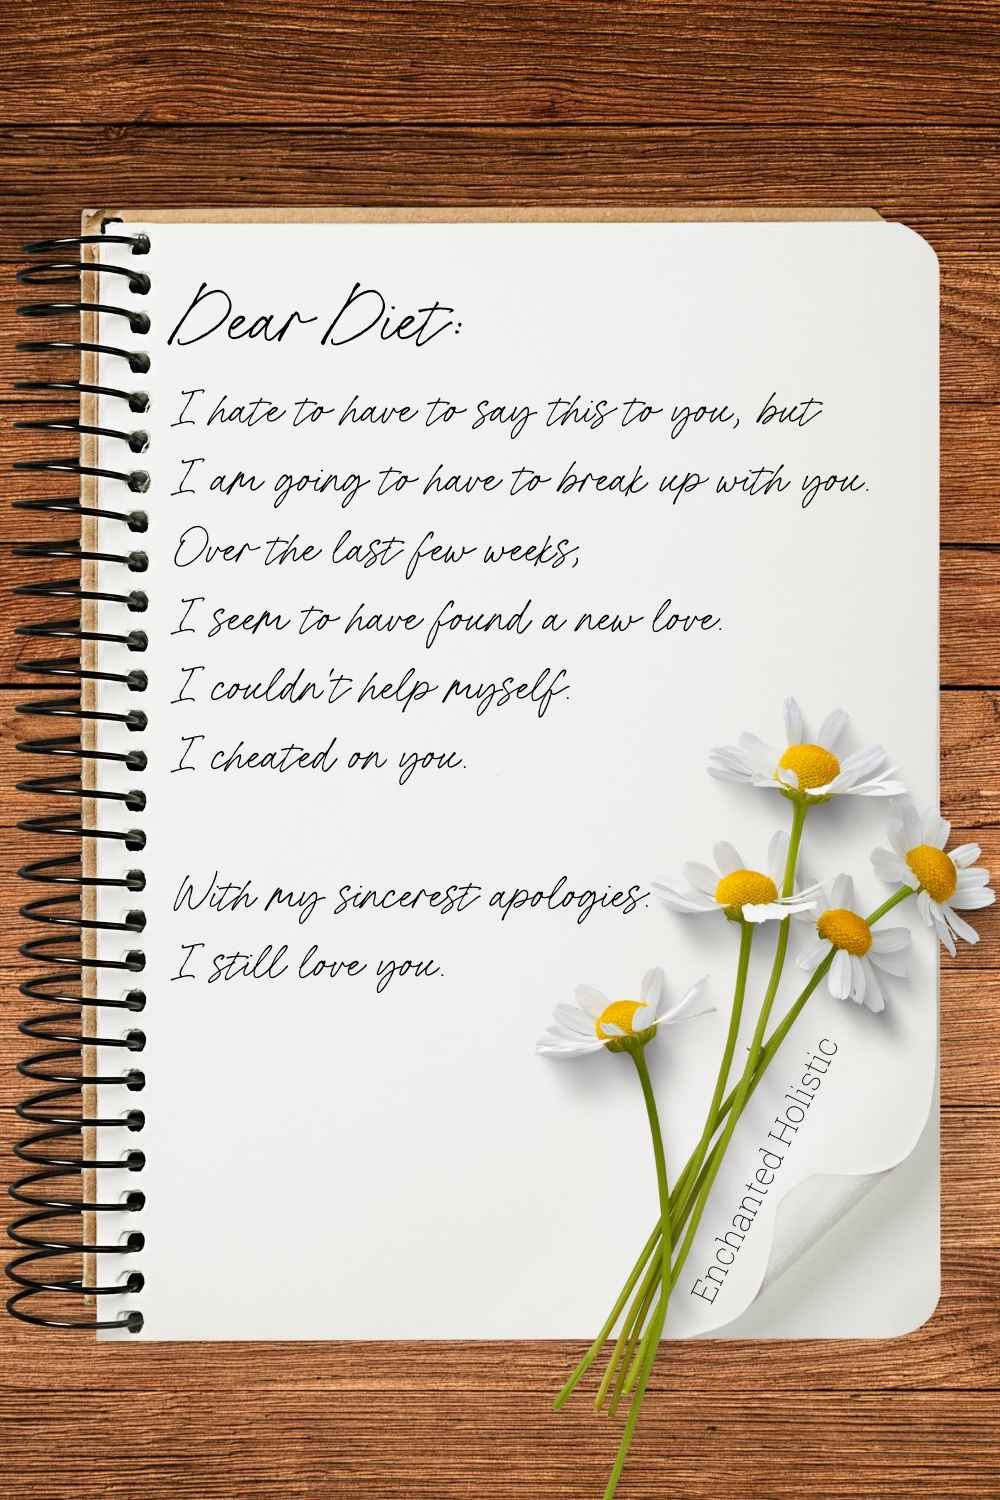 Dear Diet:
I hate to have to say this to you, but
I am going to have to break up with you.
Over the last few weeks,
I seem to have found a new love.
I couldn't help myself.
I cheated on you.
With my sincerest apologies.
I still love you.
Enchanted Holistic